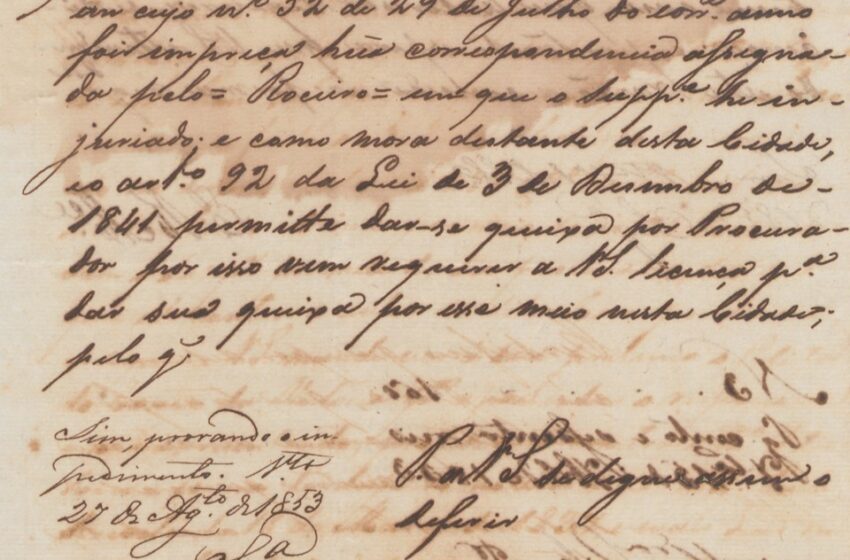 em cujo n.º 32 de 29 de Julho do corr.e anno
foi impreça húa correspondencia assigna-
da pelo = Roceiro = em que o Supp.e he in-
juriado; e como mora destante desta Cidade,
e o art.º 92 da Lei de 3 de Desembro de
1841 permitte dar-se queixa por Procura-
dor por isso vem requerer a V.S. licença p.a
dar sua queixa por esse meio nesta Cidade;
pelo q.
Sim, provando o im-
pedimento.
27 de Ag.to de 1853
P. a V.S. se digne assim o
deferir